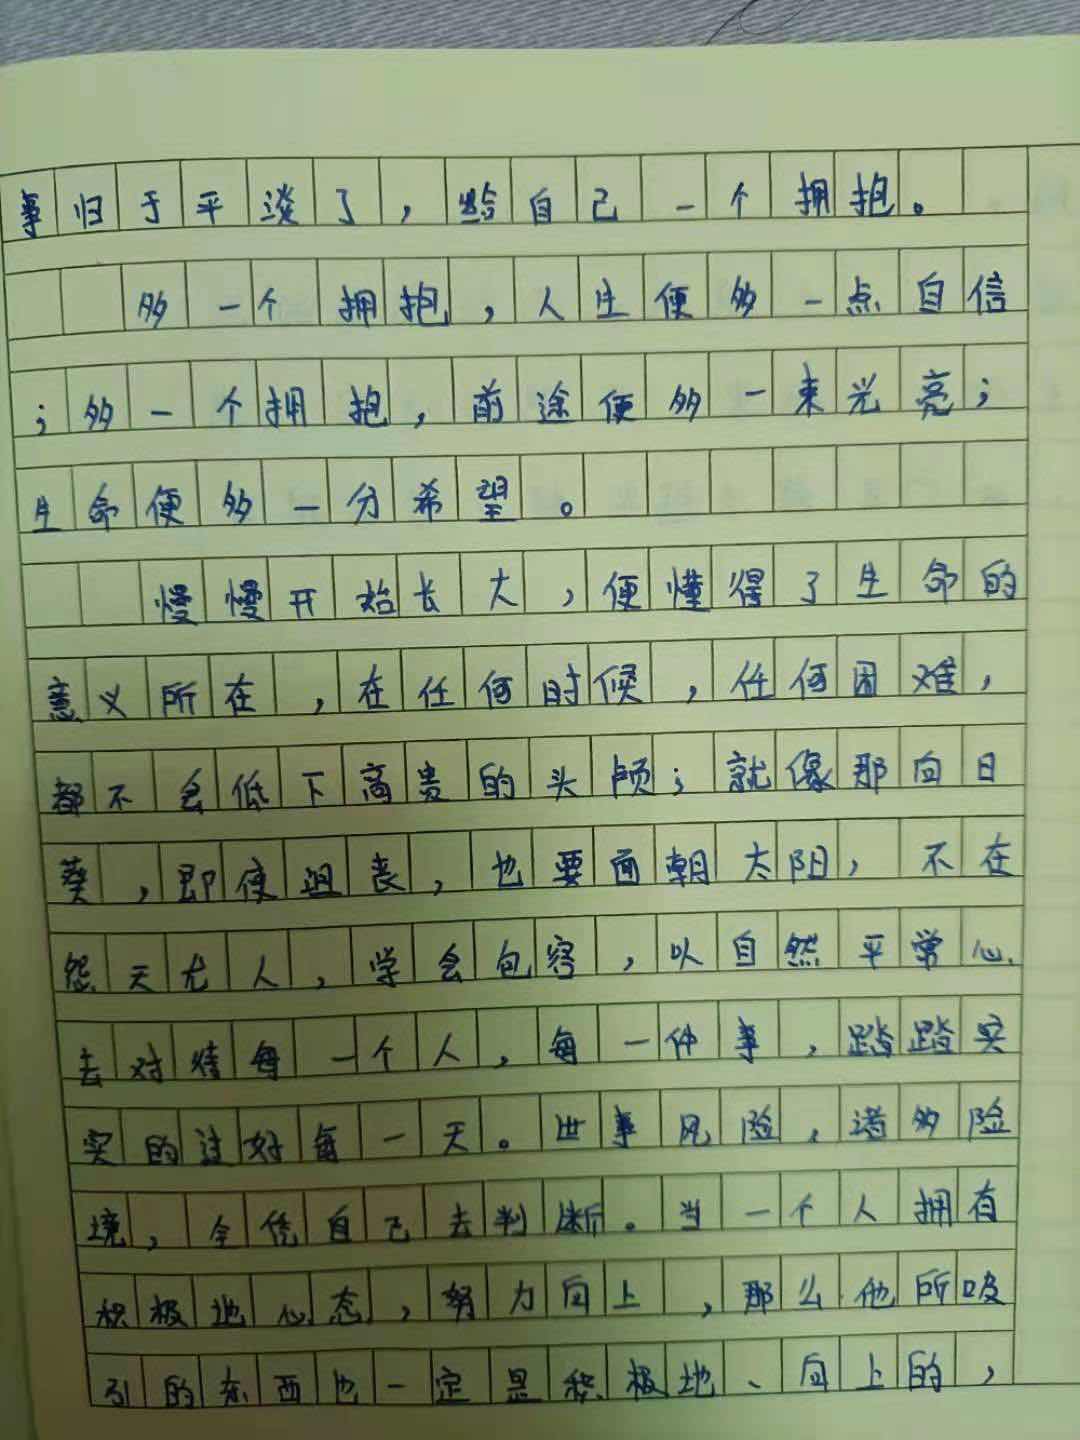 事归于平淡了，给自己一个拥抱。
多一个拥抱，人生便多一点自信
；多一个拥抱，前途便多一束光亮；
生命便多一分希望。
慢慢开始长大，便懂得了生命的
意义所在，在任何时候，任何困难，
都不会低下高贵的头颅；就像那向日
葵，即使沮丧，也要面朝太阳，不在
怨天尤人，学会包容，以自然平常心
去对待每一个人，每一件事，踏踏实
实的过好每一天。世事风险，诸多险
境，全凭自己去判断。当一个人拥有
积极地心态，努力向上，那么他所吸
引的东西也一定是积极地、向上的，